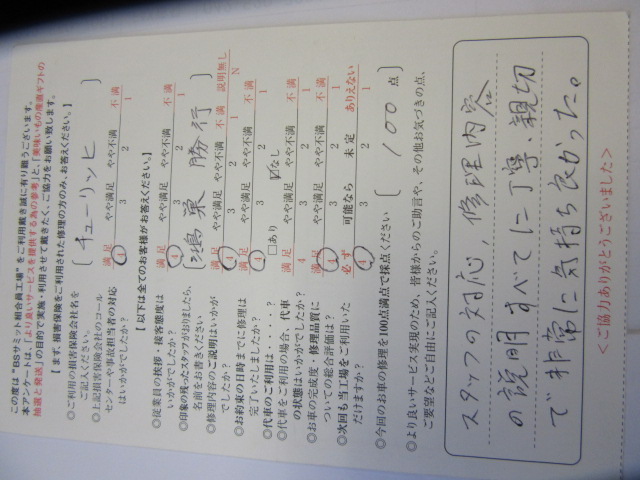 この度は"BSサミット組合員工場"をご利用戴き誠に有り難うございます。
本アンケートは、「より良いサービスを提供する為の参考」と、「美味いもの産直ギフトの
抽選と発送」の目的で実施・利用させて戴きたく、ご協力をお願い致します。
【まず、損害保険をご利用された修理の方のみ、お答えください。】
◎ご利用の損害保険会社名を
ご記入ください。 〔チューリッヒ〕
◎上記損害保険会社のコール 満足 やや満足 やや不満 不満
センターや事故担当者の対応
はいかがでしたか? 4 3 2 1
【以下は全てのお客様がお答えください。】
◎従業員の挨拶・接客態度は 満足 やや満足 やや不満 不満
いかがでしたか? 4 3 2 1
◎印象の残ったスタッフがおりましたら、
名前をお書きください 〔鴻巣 勝行〕
◎修理内容のご説明はいかが 満足 やや満足 やや不満 不満 説明無し
でしたか? 4 3 2 1 N
◎お約束の日時までに修理は 満足 やや満足 やや不満 不満
完了いたしましたか? 4 3 2 1
◎代車のご利用は・・・・・? □あり ☑なし
◎代車をご利用の場合、代車 満足 やや満足 やや不満 不満
の状態はいかがでしたか? 4 3 2 1
◎お車の完成度・修理品質に 満足 やや満足 やや不満 不満
ついての総合評価は? 4 3 2 1
◎次回も当工場をご利用いた 必ず 可能なら 未定 ありえない
だけますか? 4 3 2 1
◎今回のお車の修理を100点満点で採点ください 〔100 点〕
◎より良いサービス実現のため、皆様からのご助言や、その他お気づきの点、
ご要望などご自由にご記入ください。
スタッフの対応,修理内容
の説明すべてに丁寧、親切
で非常に気持ち良かった。
<ご協力ありがとうございました>